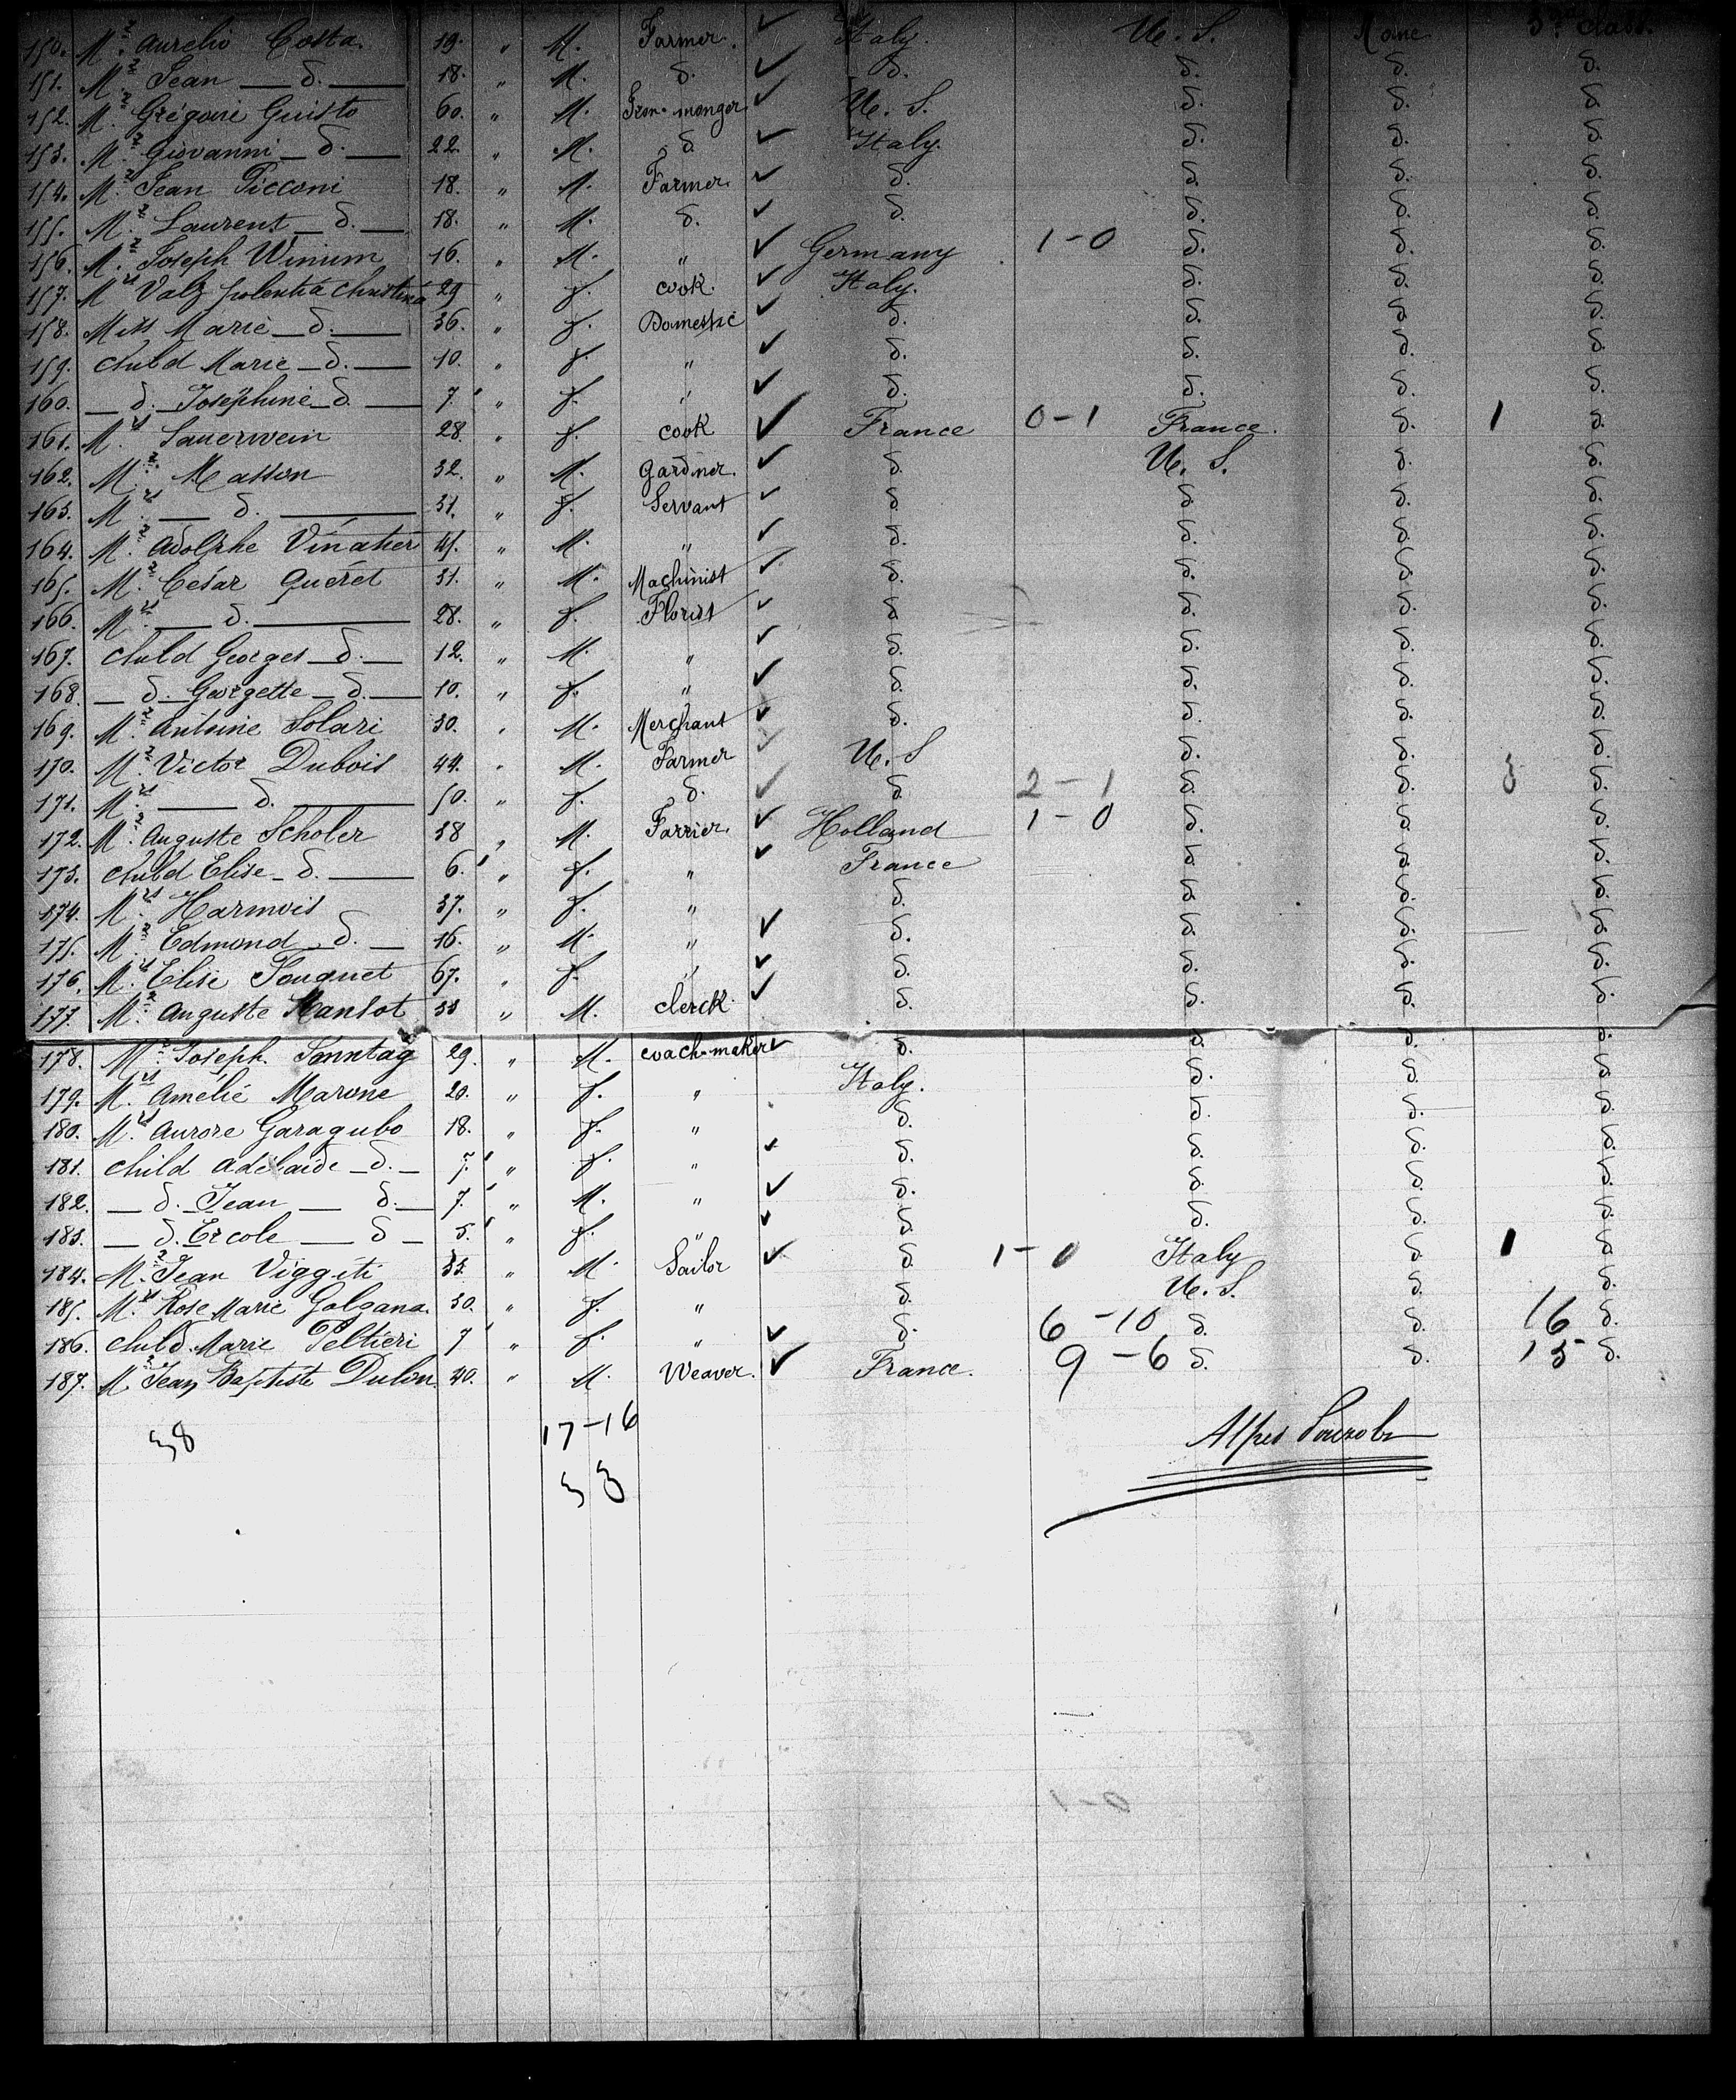 150. Mr. Aurelio Costa. 19. " M. Farmer. ✓ Italy. U. S. None 3rd class.
151. Mr. Jean — d. — 18. " M. d. ✓ d. d. d. d.
152. Mr. Grégoire Guisto 60. " M. Iron-monger ✓ U. S. d. d. d.
153. Mr. Giovanni — d. — 22. " M. d. ✓ Italy. d. d. d.
154. Mr. Jean Picconi 18. " M. Farmer. ✓ d. d. d. d.
155. Mr. Laurent — d. — 18. " M. d. ✓ d. d. d. d.
156. Mr. Joseph Winum 16. " M. " ✓ Germany 1-0 d. d. d.
157. Mrs Valz polentia Christina 29 " f. cook. ✓ Italy. d. d. d.
158. Miss Marie — d. — 36. " f. Domestic ✓ d. d. d. d.
159. child Marie — d. — 10. " f. " ✓ d. d. d. d.
160. — d. Joséphine — d. — 7. " f. " ✓ d. d. d. d.
161. Mrs Sauerwein 28. " f. cook ✓ France 0-1 France. d. 1 d.
162. Mr. Masson 32. " M. Gardner. ✓ d. U. S. d. d.
163. Mrs — d. — 31. " f. Servant ✓ d. d. d. d.
164. Mr. Adolphe Vinatier 45. " M. " ✓ d. d. d. d.
165. Mr. César Quéret 31. " M. Machinist ✓ d. d. d. d.
166. Mrs — d. — 28. " f. Florist ✓ d. d. d. d.
167. child Georges — d. — 12. " M. " ✓ d. d. d. d.
168. — d. Georgette — d. — 10. " f. " ✓ d. d. d. d.
169. Mr. Antoine Solari 30. " M. Merchant ✓ d. d. d. d.
170. Mr. Victor Dubois 44. " M. Farmer ✓ U. S d. d. d.
171. Mrs — d. — 50. " f. d. ✓ d. 2-1 d. d. 3 d.
172. Mr. Auguste Scholer 38 " M. Farrier. ✓ Holland 1-0 d. d. d.
173. child Elise — d. — 6. " f. " ✓ France d. d. d.
174. Mrs Harmois 37. " f. " d. d. d. d.
175. Mr. Edmond — d. — 16. " M. " ✓ d. d. d. d.
176. Mrs Elise Fouquet 67. " f. " ✓ d. d. d. d.
177. Mr. Auguste 33 " M. clerck. ✓ d. d. d. d.
178. Mr. Joseph Sonntag 29. " M. coach-maker ✓ d. d. d. d.
179. Mrs Amélie Marone 20. " f. " Italy. d. d. d.
180. Mrs Aurore Garagubo 18. " f. " d. d. d. d.
181. child Adélaïde — d. — 7. " f. " ✓ d. d. d. d.
182. — d. Jean — d. — 7. " M. " ✓ d. d. d. d.
183. — d. Ercole — d — 5. " f. " ✓ d. d. d. d.
184. Mr. Jean Viggiti 33. " M. Sailor ✓ d. 1-0 Italy d. 1 d
185. Mrs Rose Marie Golgana. 30. " f. " d. U. S. d. d.
186. child Marie Peltieri 7 " f. " ✓ d. 6-10 d. d. 16 d.
187. Mr Jean Baptiste Dulon. 40. " M. Weaver. ✓ France. 9-6 d. d. 15 d.
38 17-16
33